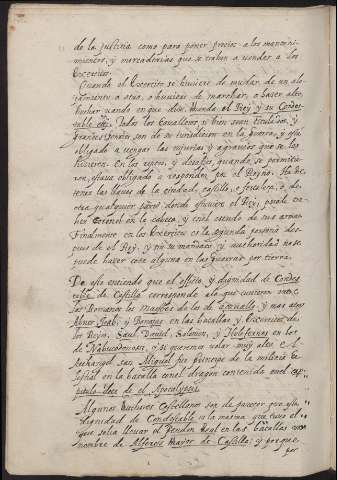 de la justicia como para poner precios a los manteni-
mientos, y mercadurias que se traben a vender a los
Exercitos.
Quando el Exercito se huviere de mudar de un alo-
jamiento a otro, o huviere de marchar, o hazer alto,
hechar vando en que diga Manda el Rey y su Condes-
table etc. Todos los Cavalleros si bien sean titulados, y
grandes Señores son de su jurisdicion en la guerra, y esta
obligado a vengar las injurias y agravios que se les
hizieren. En los rieptos, y desafios, quando se permitie-
ron, estava obligado a responder por el Reyno. Ha de
tener las llaves de la ciudad, castillo, o fortaleza, o
otra qualquiera parte donde estuviere el Rey, puede
en la cabeça, y en el escudo de sus armas.
Finalmente en los Exercitos es la segunda persona des-
pues de el Rey, y sin su mandado y authoridad no se
puede hazer cosa alguna en las guerras por tierra.
De esto entiendo que el officio, y dignidad de Condes-
table de Castilla corresponde a lo que tuvieron entre
los Romanos los Maestros de los de Cavallo, y mas
Abner Joab, y Banajas en las batallas y Exercitos de
los Reyes, Saul David, Salomon, y Holofernes en los
de Nabucodonosor, o si queremos volar muy alto, el
Archangel san Miguel fue principe de la milicia Ce-
lestial en la batalla con el dragon contenida en el ca-
pitulo doce de el Apocalypsis.
Algunos Auctores Castellanos son de parecer que esta
dignidad de Condestable es la misma que tuvo el
que solia llevar el Pendon Real en las batallas con
nombre de Alferez Mayor de Castilla: y porque
por